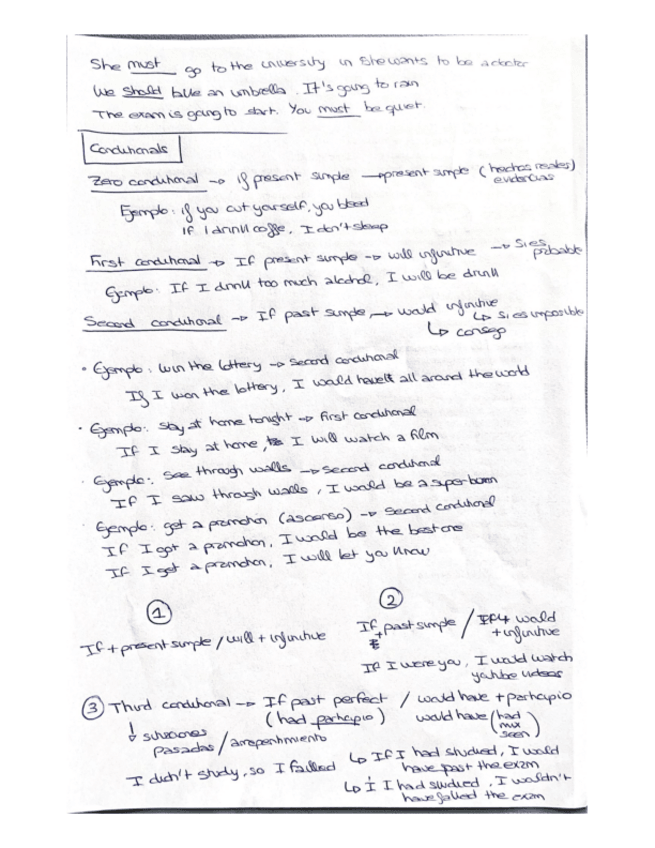 She must go to the university in She wants to be a doctor
We should take an umbrella. It's going to rain
The exam is going to start. You must be quiet.
Conditionals
Zero conditional → if present simple → present simple (hechos reales)
evidencias
Ejemplo: if you cut yourself, you bleed
If I drink coffe, I don't sleep
First conditional → If present simple → will infinitive → Si es probable
Ejemplo: If I drink too much alcohol, I will be drunk
Second conditional → If past simple → would infinitive
↳ si es imposible
↳ consejo
• Ejemplo: win the lottery → Second conditional
If I won the lottery, I would all around the world
• Ejemplo: stay at home tonight → First conditional
If I stay at home, I will watch a film
• Ejemplo: See through walls → Second conditional
If I saw through walls, I would be a
• Ejemplo: get a promotion (ascenso) → Second conditional
If I got a promotion, I would be the best one
If I get a promotion, I will let you know
①
If + present simple / will + infinitive
②
If + past simple / would + infinitive
If I were you, I would watch
youtube videos
③ Third conditional → If past perfect / would have + participio
(had participio) would have (had
seen)
↓ situaciones
pasadas / arrepentimiento
I didn't study, so I failed
↳ If I had studied, I would
have past the exam
↳ I had studied, I wouldn't
have failed the exam